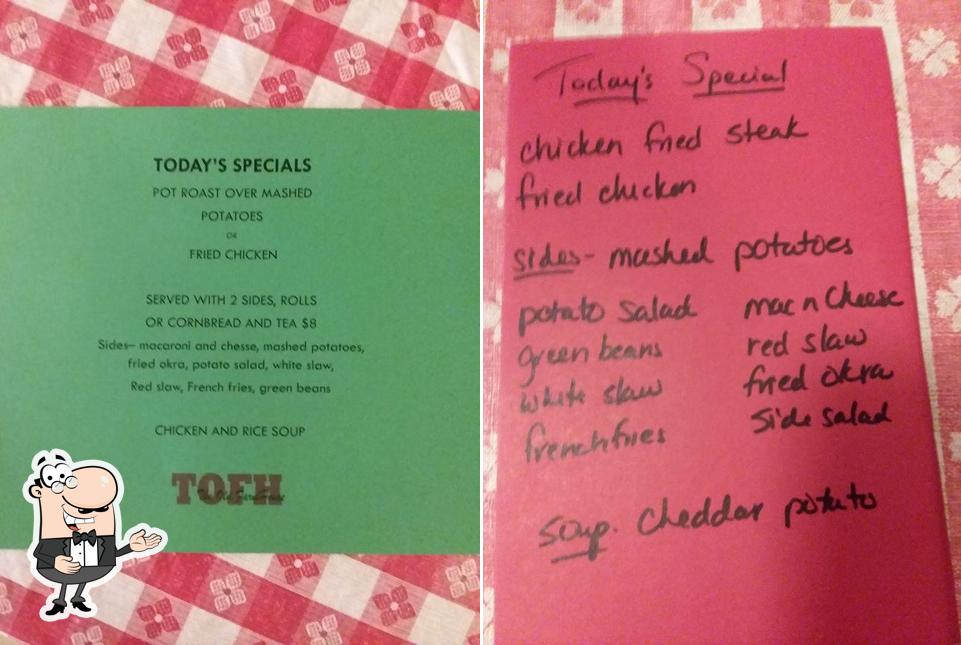 TODAY'S SPECIALS
POT ROAST OVER MASHED
POTATOES
OR
FRIED CHICKEN
SERVED WITH 2 SIDES, ROLLS
OR CORNBREAD AND TEA $8
Sides— macaroni and chesse, mashed potatoes,
fried okra, potato salad, white slaw,
Red slaw, French fries, green beans
CHICKEN AND RICE SOUP
TOFH
The Old Farm House
Today's Special
chicken fried steak
fried chicken
sides- mashed potatoes
potato salad mac n cheese
green beans red slaw
white slaw fried okra
french fries side salad
soup. Cheddar potato